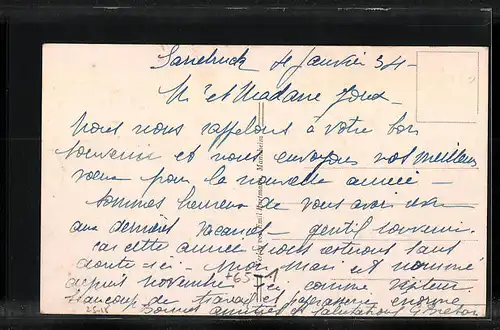 Sarrebruck 4 Janvier 34 -
Mr et Madame
Nous nous rappelons à votre bon
souvenir et nous envoyons vos meilleurs
voeux pour la nouvelle année -
sommes heureux de vous avoir
aux dernières vacances - gentil souvenir.
car cette année nous resterons sans
doute ici - Mon mari est nommé
depuis novembre comme
Beaucoup de travail et paperasserie énorme
Bonnes amitiés et salutations
Mannheim
65 71